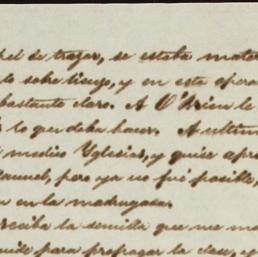 de trazar, se estaba
lo sobre tiempo, y en esta
bastante claro. A O'Brien le
lo que deba hacer. A
medico Yglesias, y quise
Manuel, pero ya no fué posible,
en la madrugada.
reciba la semilla que me
para propagar la clase, y